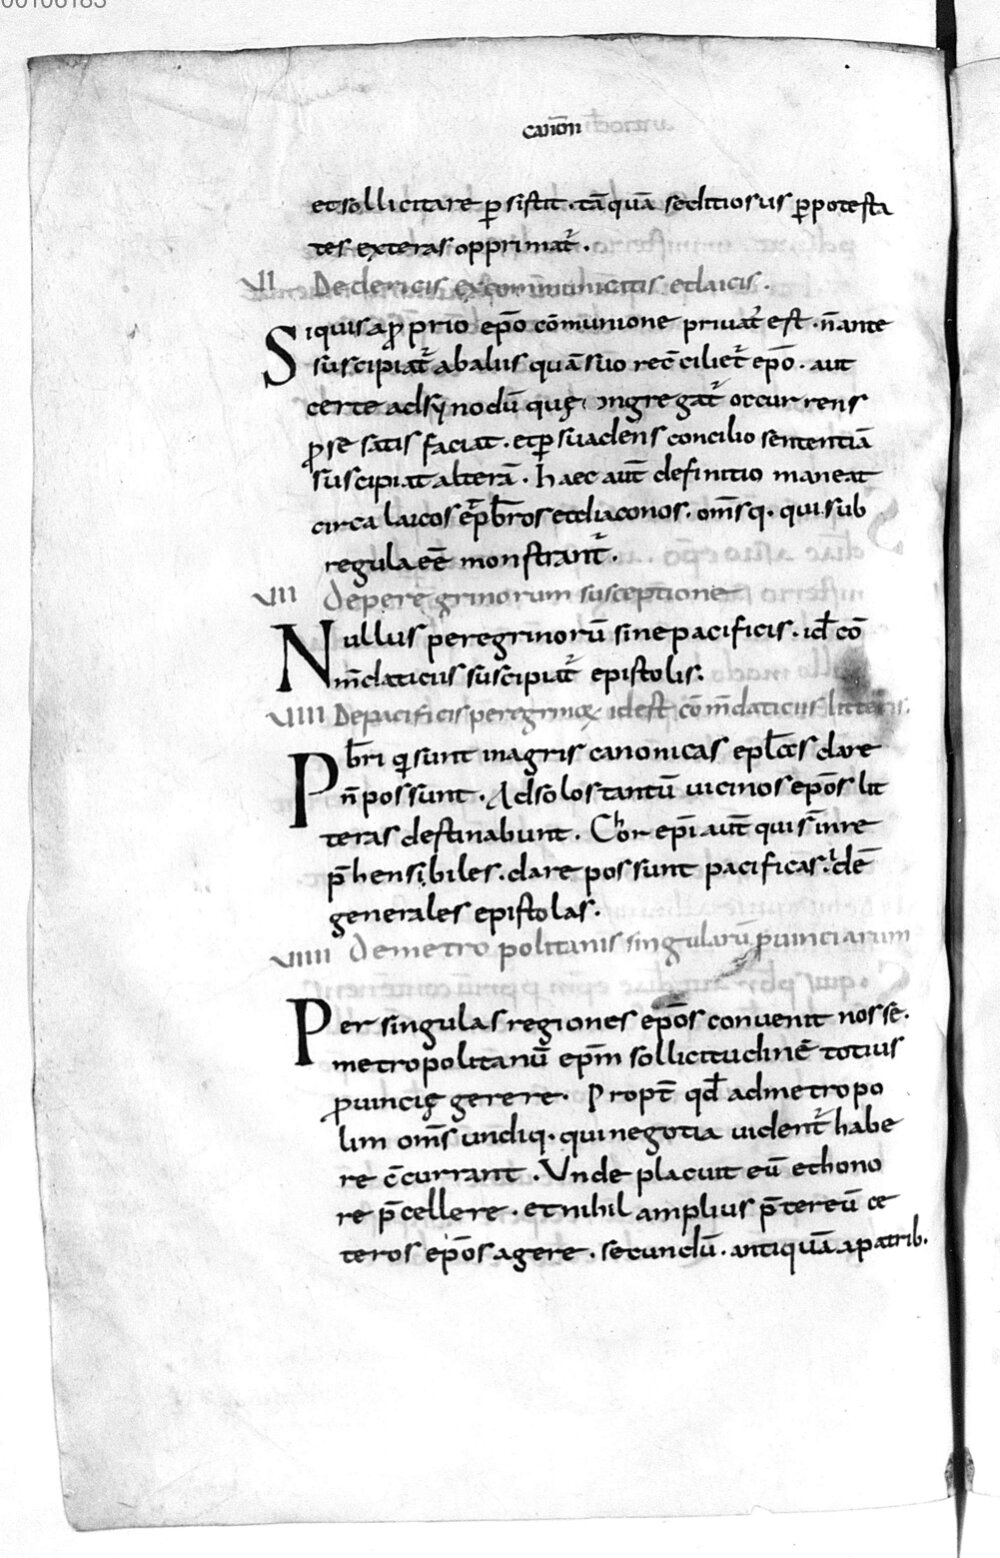 00106183
canōn
et sollicitare p̱ sistit · tā quā seditiosus p̱ potesta
tes exteras opprimat᷑ ·
VII De clericis excommunicatis et laicis ·
Siquis a ꝓprio ep̄o cōmunione privat᷑ est · n̄ ante
suscipiat᷑ ab alus quā suo rec̄ciliet᷑ ep̄o · aut
certe ad synodū quę ingregat᷑ occurrens
ꝓ se satis faciat · et p̱suadens concilio sententiā
suscipiat alterā · haec aūt definitio maneat
circa laicos et p̄br̄os et diaconos · om̄sq· qui sub
regula eē monstrant᷑ ·
VIII de peregrinorum susceptione
Nullus peregrinorū sine pacificis · id ē cō
m̄daticiis suscipiat᷑ epistolis :
VIIII De pacificis peregrinoꝝ id est cōm̄daticiis litteris ·
Pb̄ri qui sunt in agris canonicas ep̄las dare
n̄ possunt · Ad solos tantū vicinos ep̄os lit
teras destinabunt · Chor ep̄i aūt qui s̄ inre
p̄hensibiles · dare possunt pacificas · id ē
generales epistolas ·
VIIII de metropolitanis singularū ꝓvinciarum
Per singulas regiones ep̄os convenit nosse ·
metropolitanū ep̄m sollicitudinē totius
ꝓvincię gerere · Propt̄ qđ ad metropo
lim om̄s undiq· qui negotia vident᷑ habe
re c̄currant · Unde placuit eū et hono
re p̄cellere · et nihil amplius p̄ter eū ce
teros ep̄os agere · secundū · antiquā · a patrib·